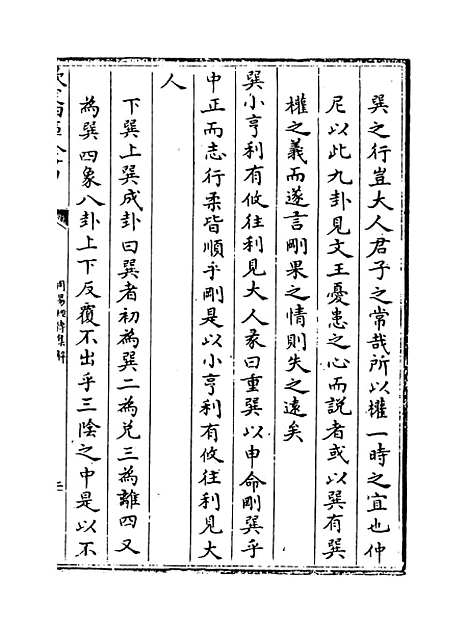 巽之行豈大人君子之常哉所以權一時之宜也仲
尼以此九卦見文王憂患之心而說者或以巽有巽
權之義而遂言剛果之情則失之遠矣
巽小亨利有攸往利見大人彖曰重巽以申命剛巽乎
中正而志行柔皆順乎剛是以小亨利有攸往利見大
人
下巽上巽成卦曰巽者初為巽二為兌三為離四又
為巽四象八卦上下反覆不出乎三陰之中是以不